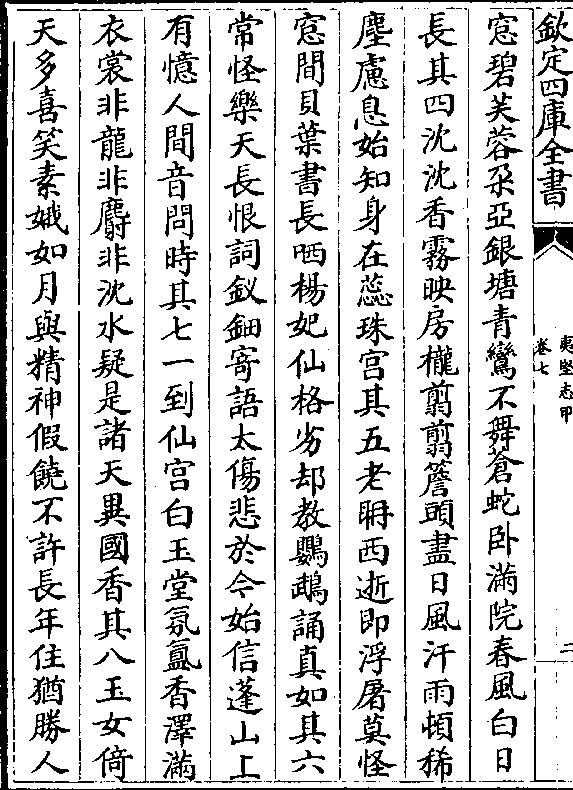 欽定四庫全書
夷堅志甲
卷七
二
窓碧芙蓉朶亞銀塘青鸞不舞蒼蛇卧滿院春風白日
長其四沈沈香霧映房櫳翦翦簷頭盡日風汗雨頓稀
塵慮息始知身在蕊珠宫其五老𣆀西逝即浮屠莫怪
窓間貝葉書長哂楊妃仙格劣却教鸚鵡誦真如其六
常怪樂天長恨詞釵鈿寄語太傷悲於今始信蓬山上
有憶人間音問時其七一到仙宫白玉堂氛氲香澤滿
衣裳非龍非麝非沈水疑是諸天異國香其八玉女倚
天多喜笑素娥如月與精神假饒不許長年住猶勝人